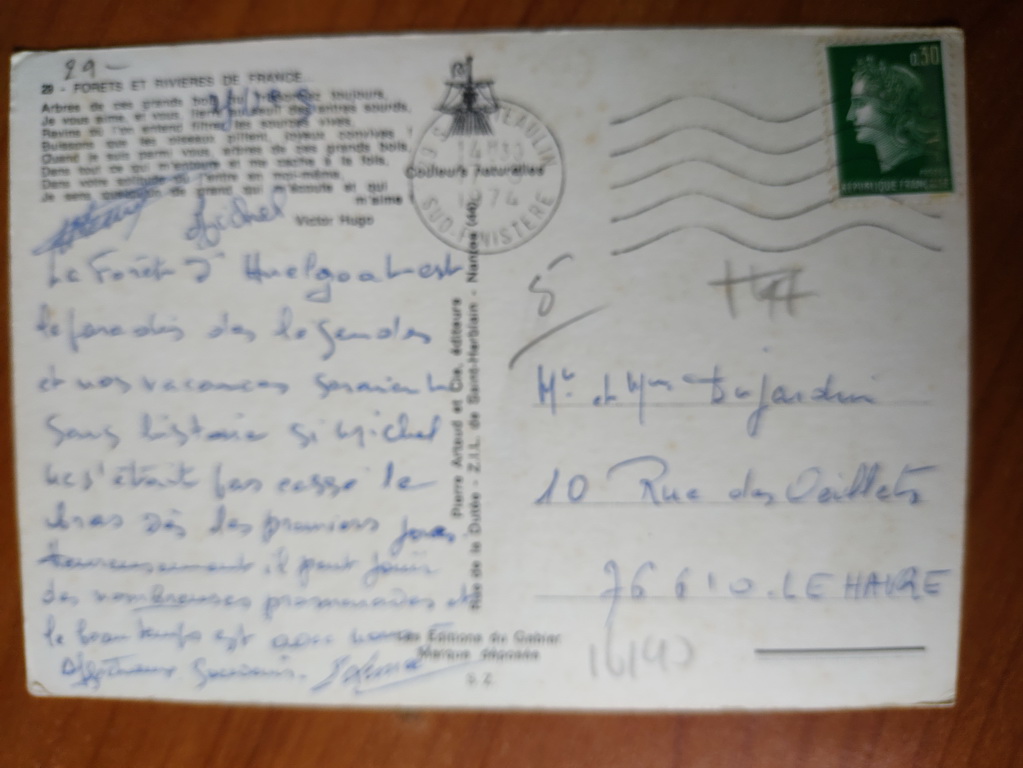 29-
29 - FORETS ET RIVIERES DE FRANCE
Arbres de ces grands bois qui toujours,
Je vous aime, et vous, antres sourds,
Ravins où l'on entend filtrer les sources vives,
Buissons que les oiseaux pillent, joyeux convives !
Quand je suis parmi vous, arbres de ces grands bois,
Dans tout ce qui m'entoure et me cache à la fois,
Dans votre solitude où j'entre en moi-même,
Je sens quelqu'un de grand qui m'écoute et qui
m'aime !
Victor Hugo
Michel
La Forêt d'Huelgoat est
le paradis des légendes
et nos vacances seraient
sans histoire si Michel
ne s'était pas cassé le
bras dès les premiers jours.
Heureusement, il peut jouir
des nombreuses promenades et
le beau temps est avec nous
Affectueux Souvenirs.
Couleurs naturelles
CHATEAULIN
14H30
1974
SUD-FINISTERE
Pierre Artaud et Cie, éditeurs
Rue de la Dutée - Z.I.L. de Saint-Herblain - Nantes (44)
Les Editions du Gabier
Marque déposée
0,30
REPUBLIQUE FRANCAISE
5
Mr et Mme Dujardin
10 Rue des Oeillets
76610. LE HAVRE